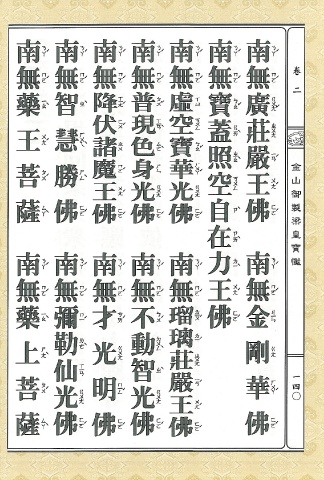 卷二
金山御製梁皇寶懺
一四〇
南無廣莊嚴王佛 南無金剛華佛
南無寶蓋照空自在力王佛
南無虛空寶華光佛 南無瑠璃莊嚴王佛
南無普現色身光佛 南無不動智光佛
南無降伏諸魔王佛 南無才光明佛
南無智慧勝佛 南無彌勒仙光佛
南無藥王菩薩 南無藥上菩薩